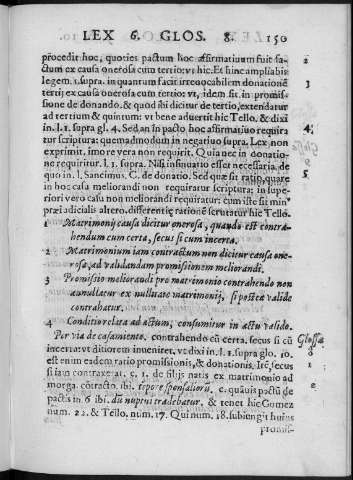 LEX 6. GLOS. 8. 150
procedit hoc, quoties pactum hoc affirmatiuum fuit fa- 2
ctum ex causa onerosa cum tertio: vt hic. Et hinc ampliabis
legem. 1. supra in quantum facit irreuocabilem donationē 3
terti; ex causa onerosa cum tertio: vt, idem sit in promis-
sione de donando. & quod ibi dicitur de tertio, extendatur
ad tertium & quintum: vt bene aduertit hic Tello. & dixi
in. l. 1. supra gl. 4. Sed an in pacto hoc affirmatiuo requira 4
tur scriptura: quemadmodum in negatiuo supra. Lex non
exprimit. imore vera non requirit. Quia nec in donatio-
ne requiritur. l. 1. supra. Nisi insinuatio esset necessaria. de
quo in. l. Sancimus. C. de donatio. Sed quæ sit ratio, quare 5
in hoc casa meliorandi non requiratur scriptura; in supe-
riori vero casu non meliorandi requiratur: cum iste sit min⁹
præiudicialis altero. differentię rationē scrutatur hic Tello.
1 Matrimonij causa dicitur onerosa, quando est contra-
hendum cum certa, secus si cum incerta.
2 Matrimonium iam contractum non dicitur causa one-
rosa, ad validandam promissionem meliorandi.
3 Promissio meliorandi pro matrimonio contrahendo non
annullatur ex nullitate matrimonij, si postea valide
contrahatur.
4 Conditio relata ad actum, consumitur in actu valido.
Per via de casamiento. contrahendo cū certa, secus si cū Glossa
incerta: vt ditiorem inueniret. vt dixi in. l. 1. supra glo. 10. 8
est enim eadem ratio promissionis, & donationis. Itē, secus 1
si iam contraxerat. c. 1. de filijs natis ex matrimonio ad 2
morga. cōtracto. ibi. tẽpore sponsaliorū. c. quāuis pactū de
pactis in 6 ibi. dū nuptui tradebatur. & tenet hic Gomez
num. 22. & Tello. num. 17. Qui num. 18. subiungit huius
promis-